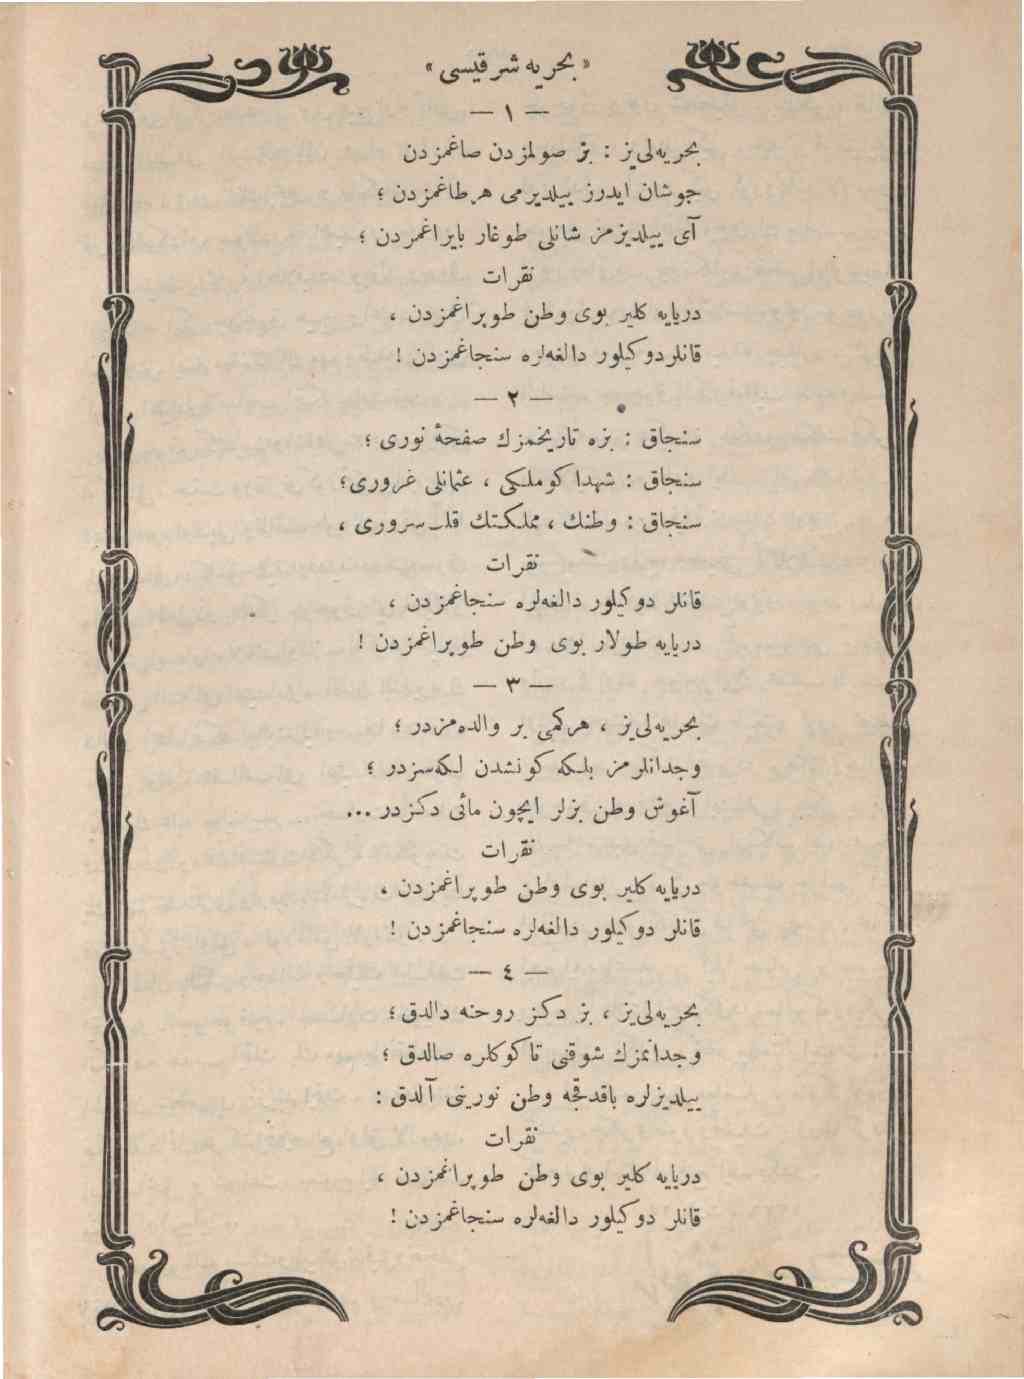 «بحریه شرقیسی»
— ١ —
بحریه‌لی‌یز : بز صولمزدن صاغمزدن
جوشان ایدرز ییلدیرمی هر طاغمزدن ؛
آی ییلدیزمز شانلی طوغار بایراغمزدن ؛
نقرات
دریایه کلیر بوی وطن طوپراغمزدن ،
قانلر دوکیلور دالغه‌لره سنجاغمزدن !
— ٢ —
سنجاق : بزه تاریخمزك صفحهٔ نوری ؛
سنجاق : شهدا کوملکی ، عثمانلی غروری؛
سنجاق : وطنك ، مملکتك قلب سروری ،
نقرات
قانلر دوکیلور دالغه‌لره سنجاغمزدن ،
دریایه طولار بوی وطن طوپراغمزدن !
— ٣ —
بحریه‌لی‌یز ، هرکمی بر والده‌مزدر ؛
وجدانلرمز بلکه کونشدن لکه‌سزدر ؛
آغوش وطن بزلر ایچون مائی دکزدر ...
نقرات
دریایه کلیر بوی وطن طوپراغمزدن ،
قانلر دوکیلور دالغه‌لره سنجاغمزدن !
— ٤ —
بحریه‌لی‌یز ، بز دکز روحنه دالدق ؛
وجدانمزك شوقنی تا کوکلره صالدق ؛
ییلدیزلره باقدقجه وطن نورینی آلدق :
نقرات
دریایه کلیر بوی وطن طوپراغمزدن ،
قانلر دوکیلور دالغه‌لره سنجاغمزدن !